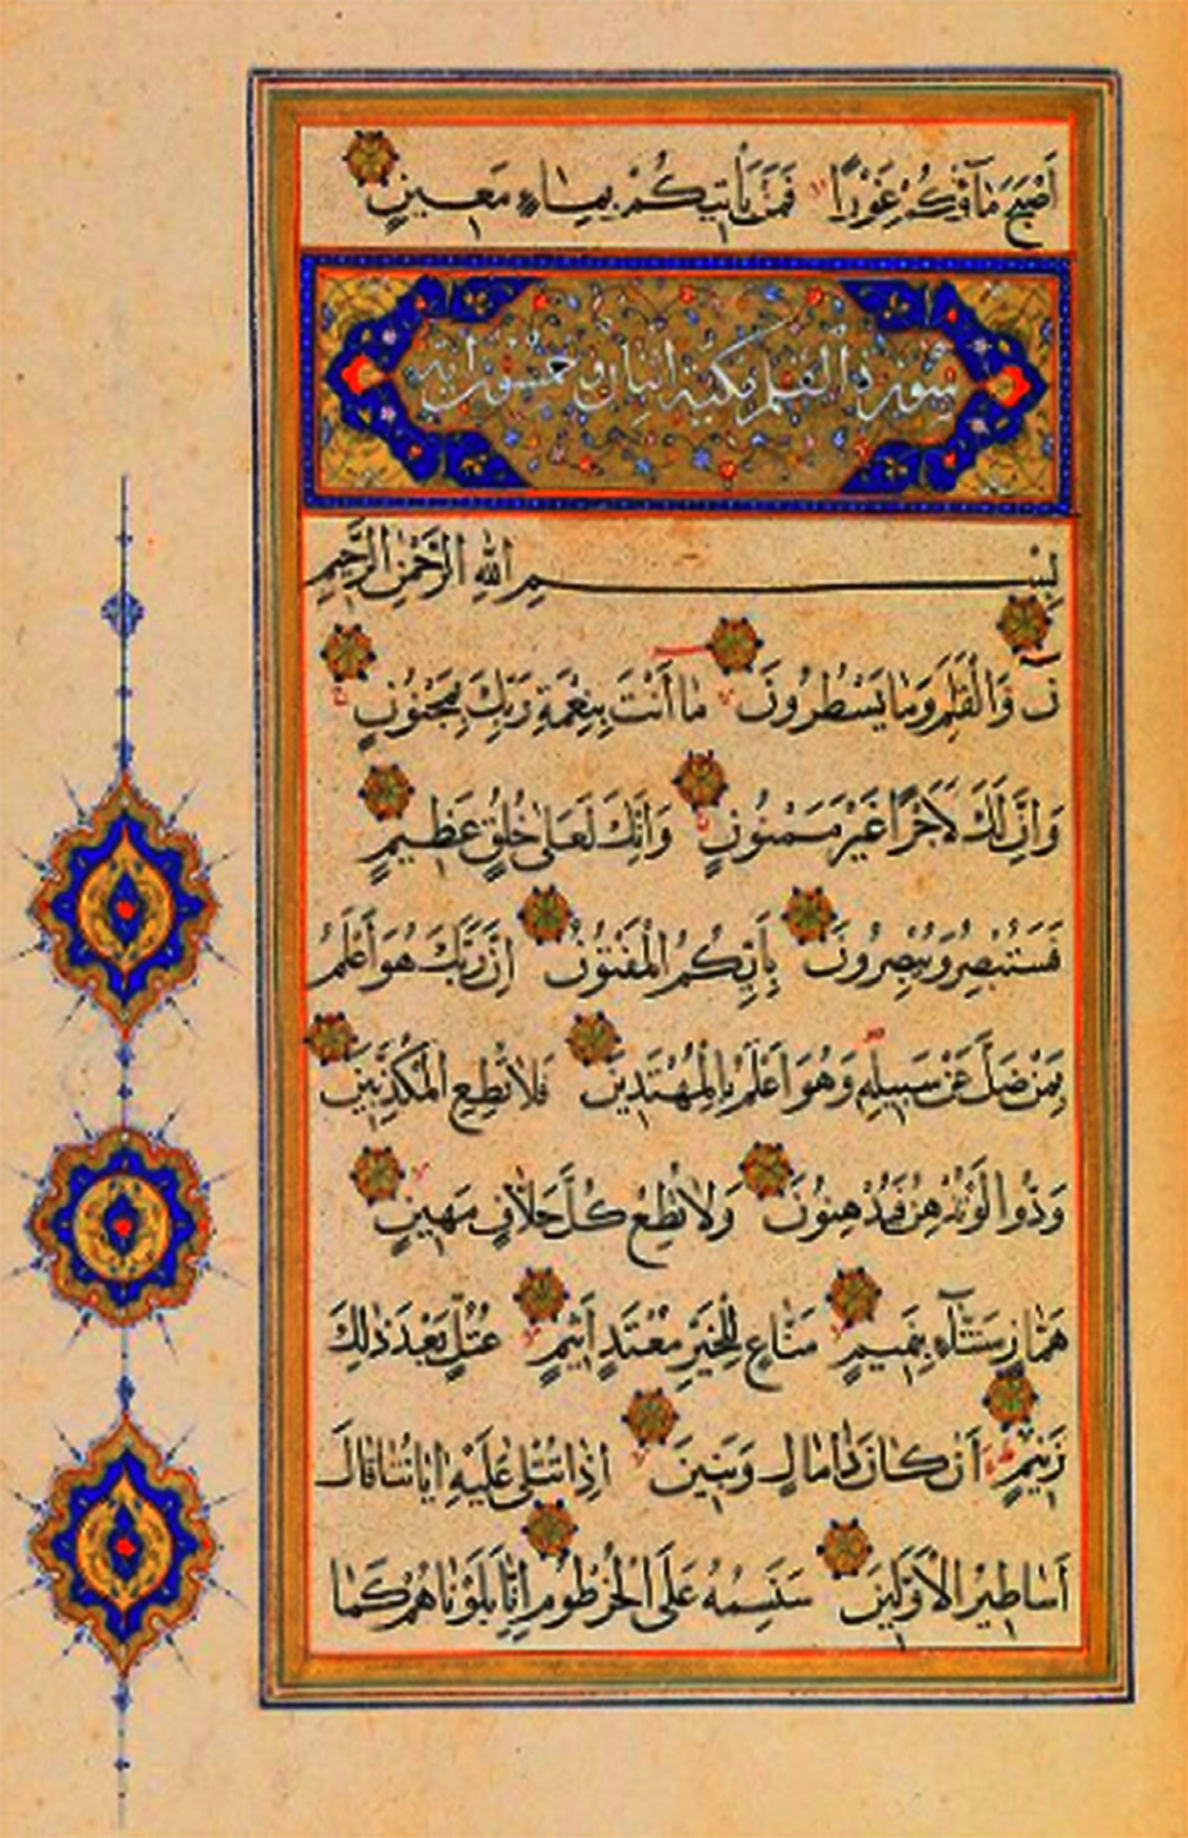 أَصْبَحَ مَآؤُكُمْ غَوْرًا فَمَنْ يَأْتِيكُمْ بِمَاءٍ مَعِينٍ
سورة القلم مكية اثنان وخمسون اية
بِسْمِ اللهِ الرَّحْمٰنِ الرَّحِيمِ
نٓ وَالْقَلَمِ وَمَا يَسْطُرُونَ مَا أَنْتَ بِنِعْمَةِ رَبِّكَ بِمَجْنُونٍ
وَاِنَّ لَكَ لَاَجْرًا غَيْرَ مَمْنُونٍ وَاِنَّكَ لَعَلٰى خُلُقٍ عَظِيمٍ
فَسَتُبْصِرُ وَيُبْصِرُونَ بِاَيِّكُمُ الْمَفْتُونُ اِنَّ رَبَّكَ هُوَ اَعْلَمُ
بِمَنْ ضَلَّ عَنْ سَبِيلِهِ وَهُوَ اَعْلَمُ بِالْمُهْتَدِينَ فَلَا تُطِعِ الْمُكَذِّبِينَ
وَدُّوا لَوْ تُدْهِنُ فَيُدْهِنُونَ وَلَا تُطِعْ كُلَّ حَلَّافٍ مَهِينٍ
هَمَّازٍ مَشَّآءٍ بِنَمِيمٍ مَنَّاعٍ لِلْخَيْرِ مُعْتَدٍ اَثِيمٍ عُتُلٍّ بَعْدَ ذٰلِكَ
زَنِيمٍ اَنْ كَانَ ذَا مَالٍ وَبَنِينَ اِذَا تُتْلٰى عَلَيْهِ اٰيَاتُنَا قَالَ
اَسَاطِيرُ الْاَوَّلِينَ سَنَسِمُهُ عَلَى الْخُرْطُومِ اِنَّا بَلَوْنَاهُمْ كَمَا